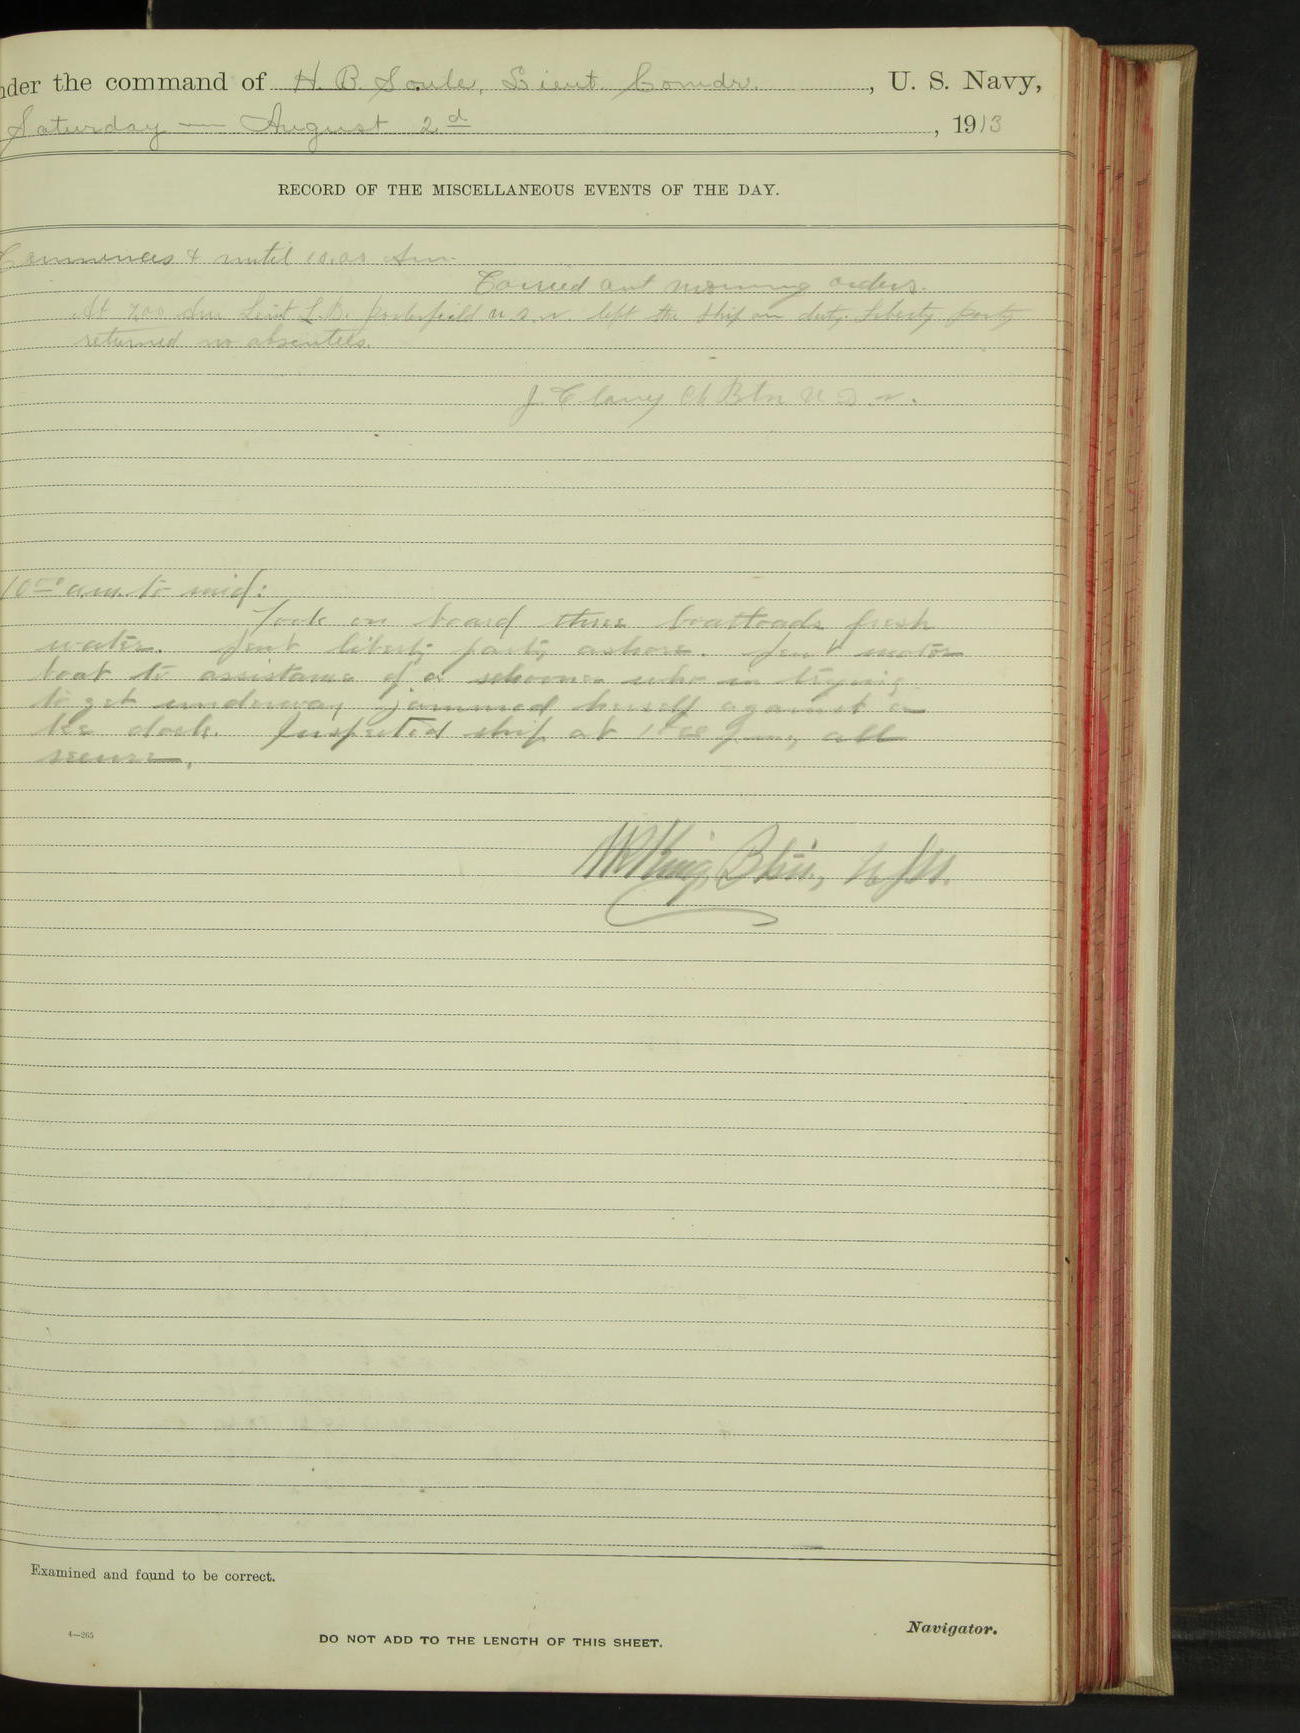 nder the command of H. B. Soule, Lieut. Comdr. , U. S. Navy,
Saturday — August 2d , 1913
RECORD OF THE MISCELLANEOUS EVENTS OF THE DAY.
Commences & until 10.00 Am.
Carried out morning orders.
At 7.00 Am Lieut L.B. Porterfield U.S.N. left the ship on duty. Liberty party
returned no absentees.
J. Clancy Ch Btsn U.S.N.
10 a.m. to mid:
Took on board three boatloads fresh
water. Sent liberty party ashore. Sent motor
boat to assistance of a schooner who in trying
to get underway jammed herself against
the dock. Inspected ship at all
secure.
King, Btsn, U.S.N.
Examined and found to be correct.
Navigator.
4—265
DO NOT ADD TO THE LENGTH OF THIS SHEET.